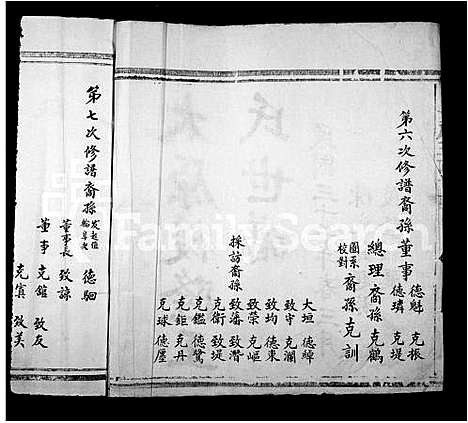 第六次修譜裔孫董事 德魁 克振
德璘 克堤
總理裔孫克鶴
圖系校對 裔孫克訓
大垣 德綽
致守 克瀾
致均 德東
致榮 克嶇
採訪裔孫 致藩 致潛
克衛 致堤
克鑑 德鷺
克鉅 克丹
克球 德屋
第七次修譜裔孫 德駟
董事長 致諒
董事 克鎧 致友
克寘 致美
FamilySearch